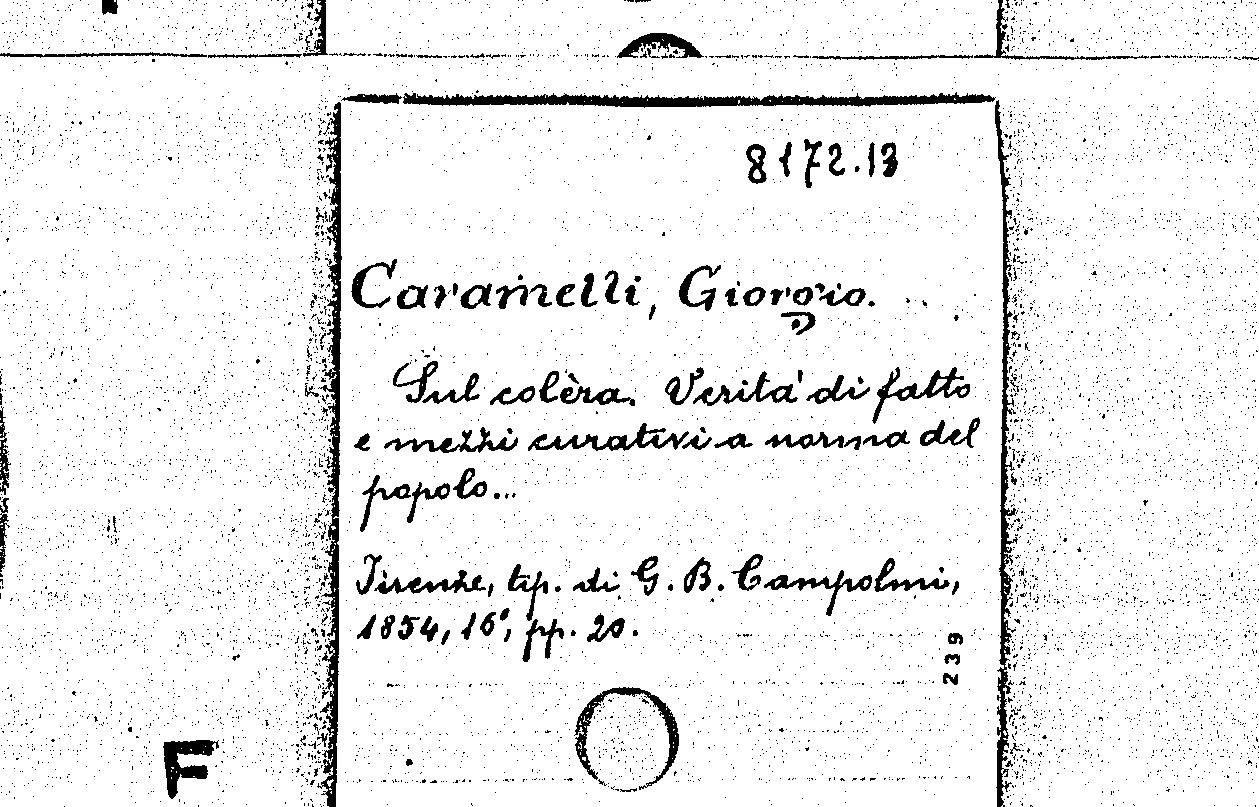 8172.13
Caramelli, Giorgio.
Sul colèra. Verita' di fatto
e mezzi curativi a norma del
popolo...
Firenze, tip. di G. B. Campolmi,
1854, 16°, pp. 20.
239
F